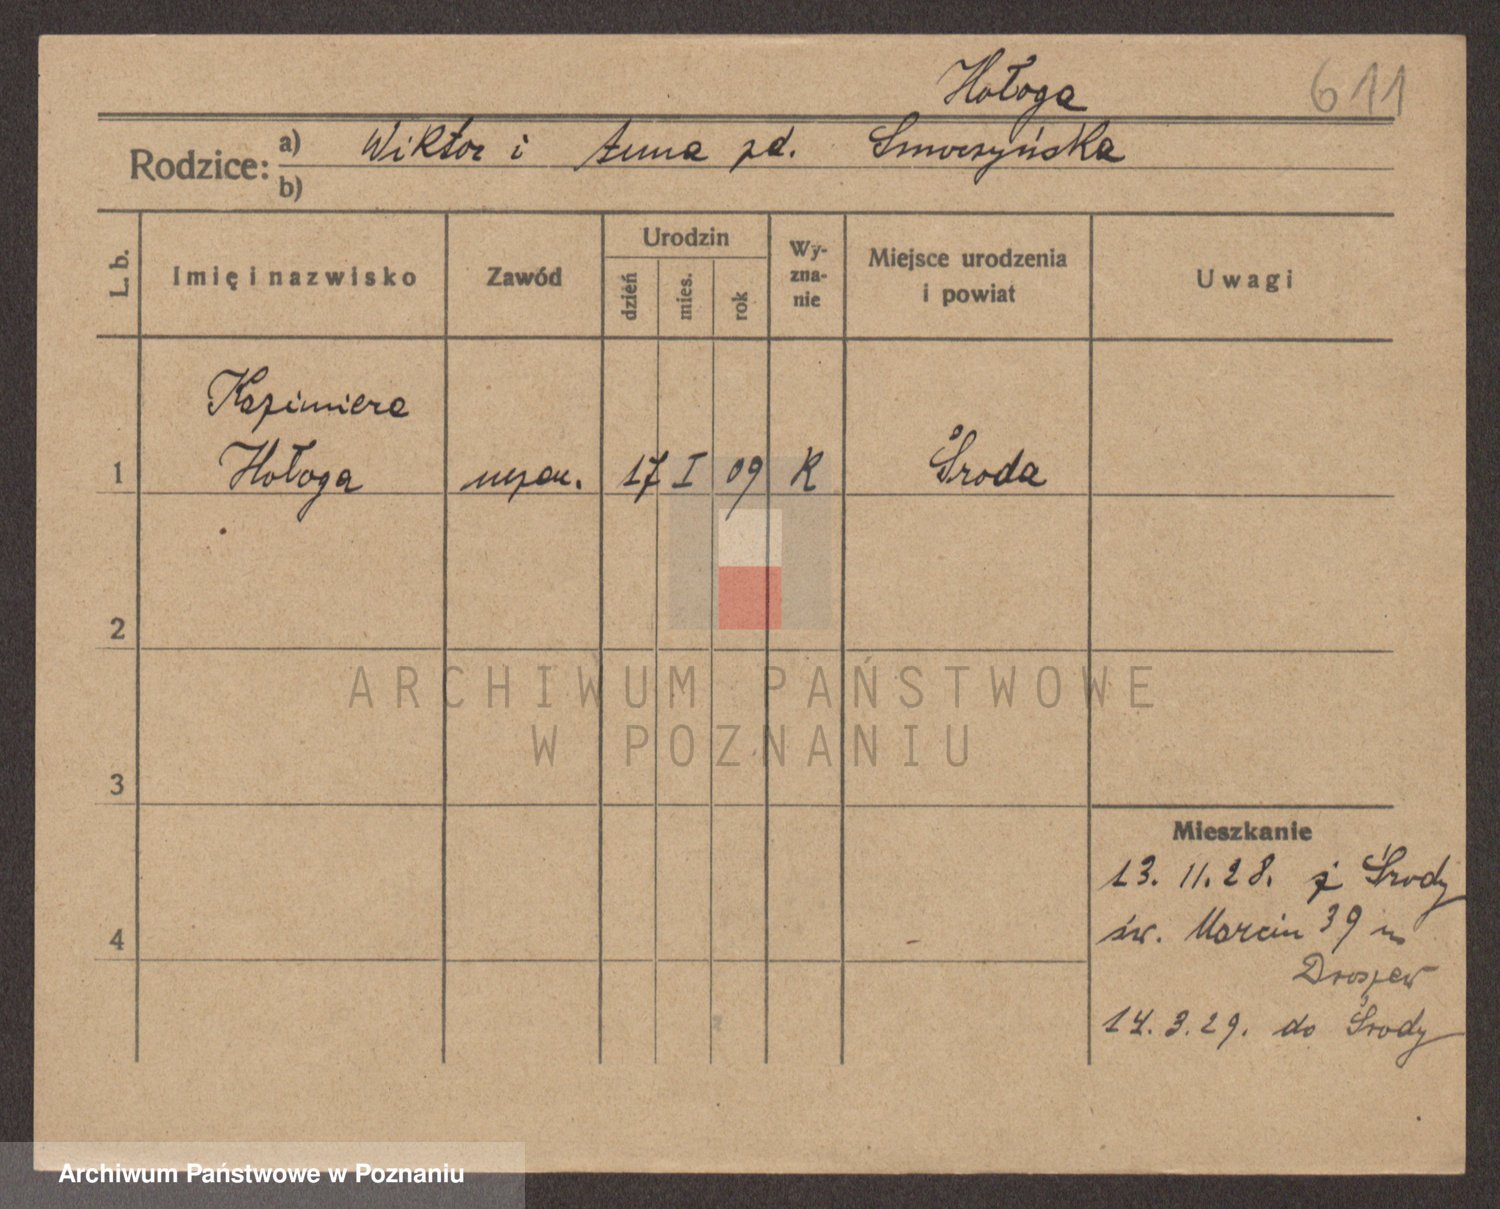 Hołoga 611
Rodzice: a) Wiktor i Anna zd. Smorzyńska
b)
L. b. Imię i nazwisko Zawód Urodzin dzień mies. rok Wyznanie Miejsce urodzenia i powiat Uwagi
Kazimiera
1 Hołoga 17 I 09 K Środa
2
ARCHIWUM PAŃSTWOWE
W POZNANIU
3
Mieszkanie
13. 11. 28. z Środy
4 św. Marcin 39 u
14. 3. 29. do Środy
Archiwum Państwowe w Poznaniu